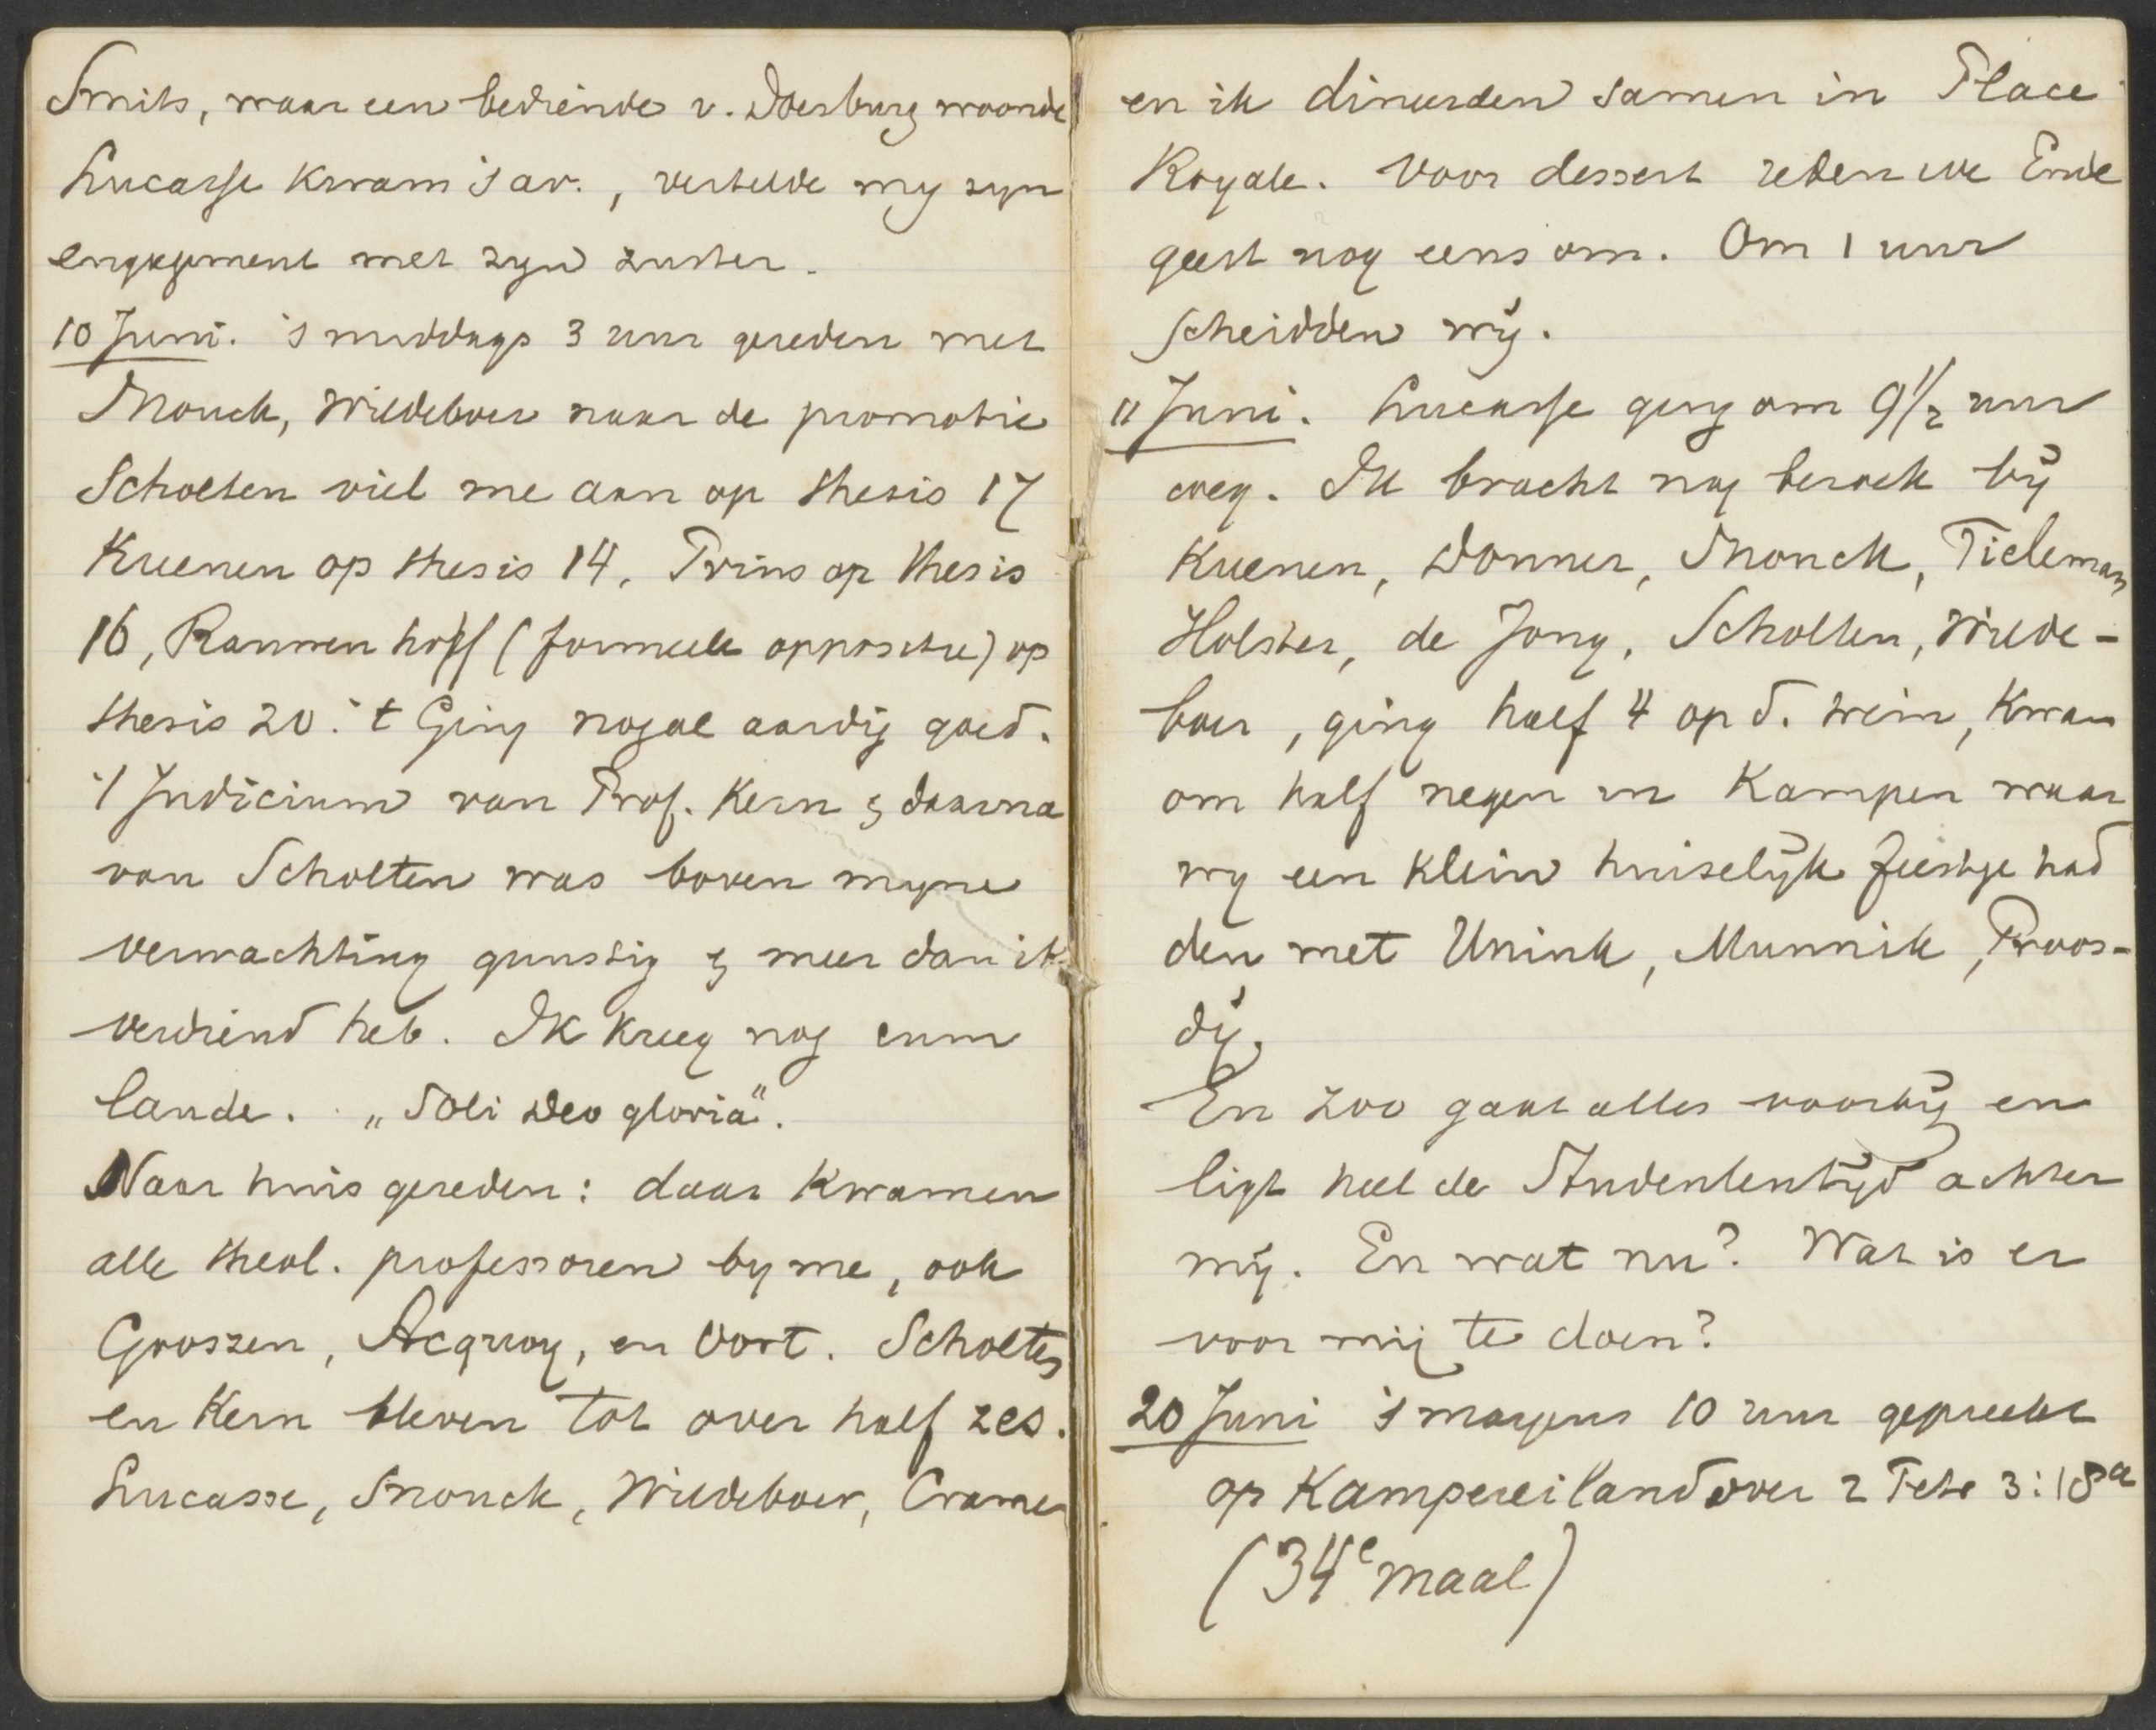 Smits, waar een bediende v. Doesburg woonde
Lucasse kwam 's av., vertelde my zyn
engagement met zyn zuster.
10 Juni. 's middags 3 uur gereden met
Snouck, Wildeboer naar de promotie
Scholten viel me aan op thesis 17
Kuenen op thesis 14, Prins op thesis
16, Rauwenhoff (formeele oppositie) op
thesis 20. 't Ging nogal aardig goed.
't Judicium van Prof. Kern & daarna
van Scholten was boven myne
verwachting gunstig & meer dan ik
verdiend heb. Ik kreeg nog cum
laude. „Soli Deo gloria".
Naar huis gereden: daar kwamen
alle theol. professoren by me, ook
Goossen, Acquoy, en Oort. Scholten
en Kern bleven tot over half zes.
Lucasse, Snouck, Wildeboer, Cramer
en ik dineerden samen in Place
Royale. Voor dessert reden we Ende
geest nog eens om. Om 1 uur
scheidden wij.
11 Juni. Lucasse ging om 9 1/2 uur
weg. Ik bracht nog bezoek bij
Kuenen, Donner, Snouck, Tieleman
Holster, de Jong, Scholten, Wilde-
boer, ging half 4 op d. trein, kwam
om half negen in Kampen waar
wy een klein huiselijk feestje had
den met Unink, Munnik, Proos-
dij.
En zoo gaat alles voorbij en
ligt heel de Studententijd achter
mij. En wat nu? Wat is er
voor mij te doen?
20 Juni 's morgens 10 uur gepreekt
op Kampereiland over 2 Petr 3:18a
(34e maal)